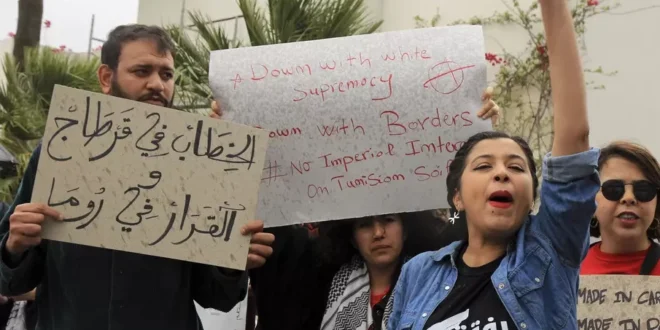 الخِطَابْ فِي قَرْطَاج
و
القَرَارْ فِي رُومَا
# Down with White
Supremacy
own with Borders
# No Imperial
On Tunisian Soi
MADE IN CAR
MADE IN